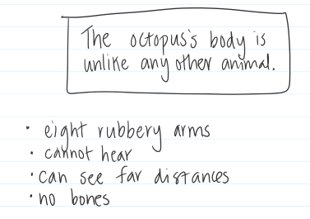 The octopus's body is
unlike any other animal.
• eight rubbery arms
• cannot hear
• can see far distances
• no bones